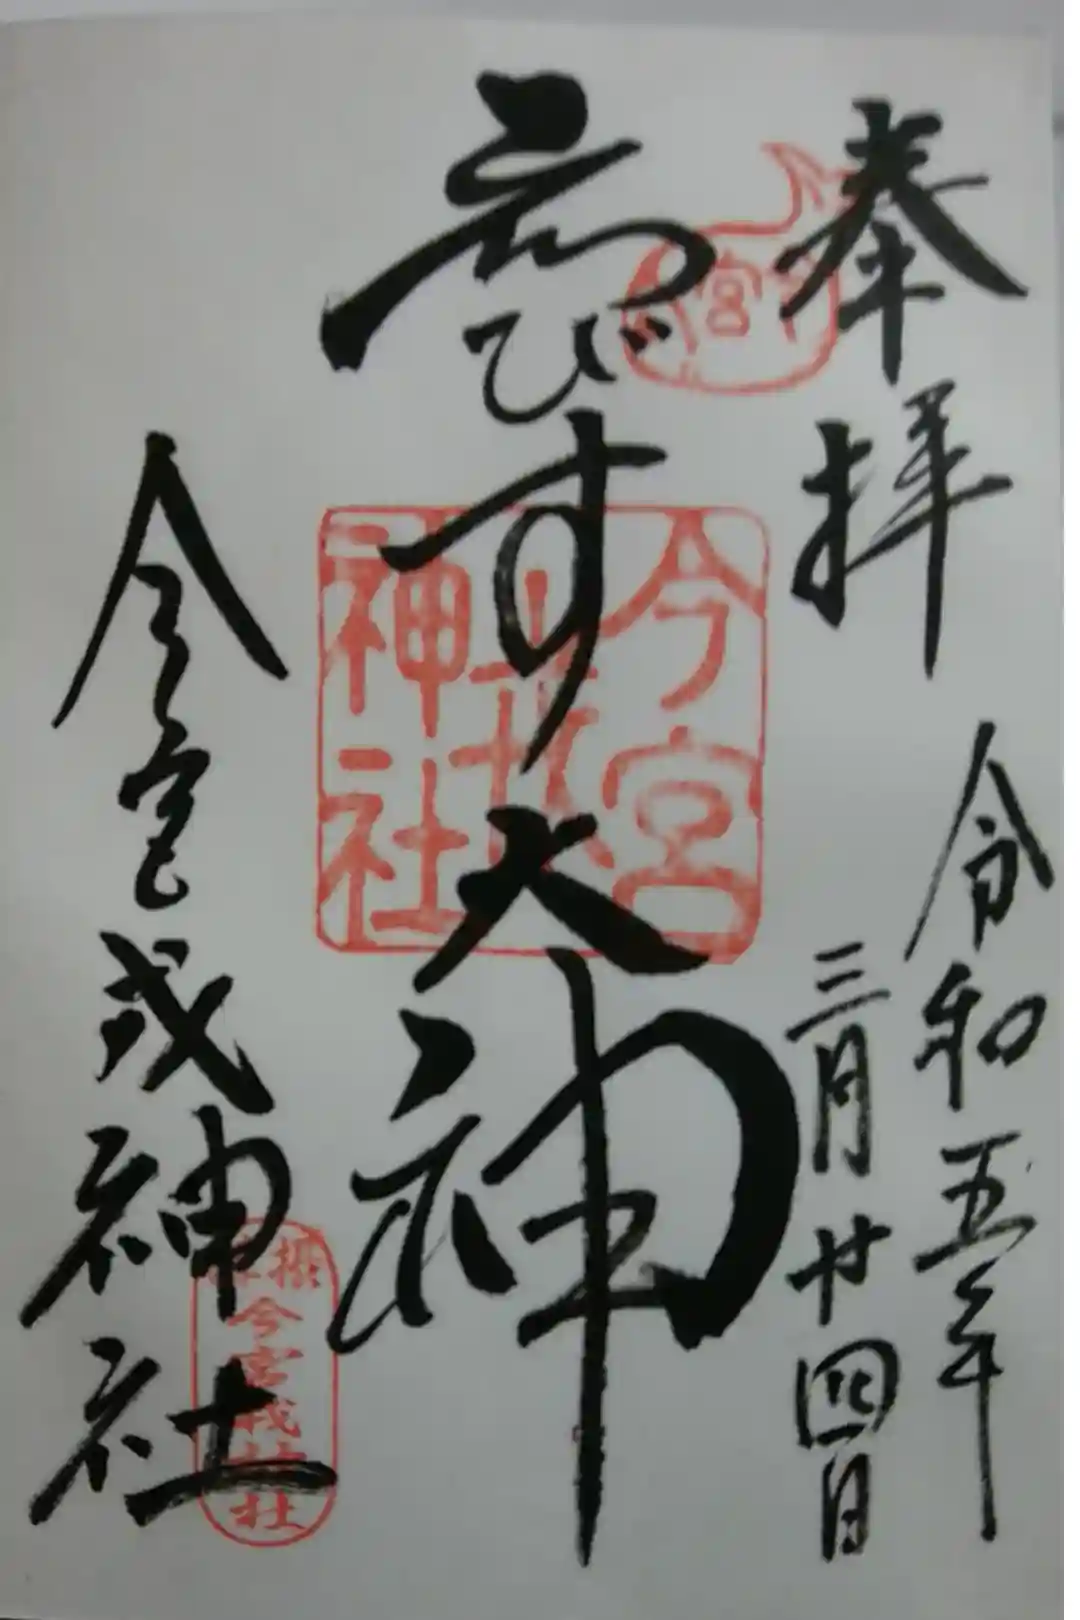 奉拝
令和五年
三月廿四日
ゑびす大神
今宮戎神社
今宮
戎
神社
今宮戎神社